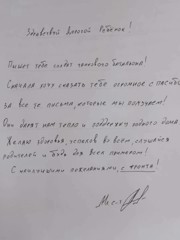 Здравствуй дорогой Ребёнок!
Пишет тебе солдат
Сначала хочу сказать тебе огромное спасибо
за все те письма, которые мы получаем!
Они дарят нам тепло и поддержку родного дома
Желаю здоровья, успехов во всем, слушайся
родителей и будь для всех примером!
С наилучшими пожеланиями, с фронта!